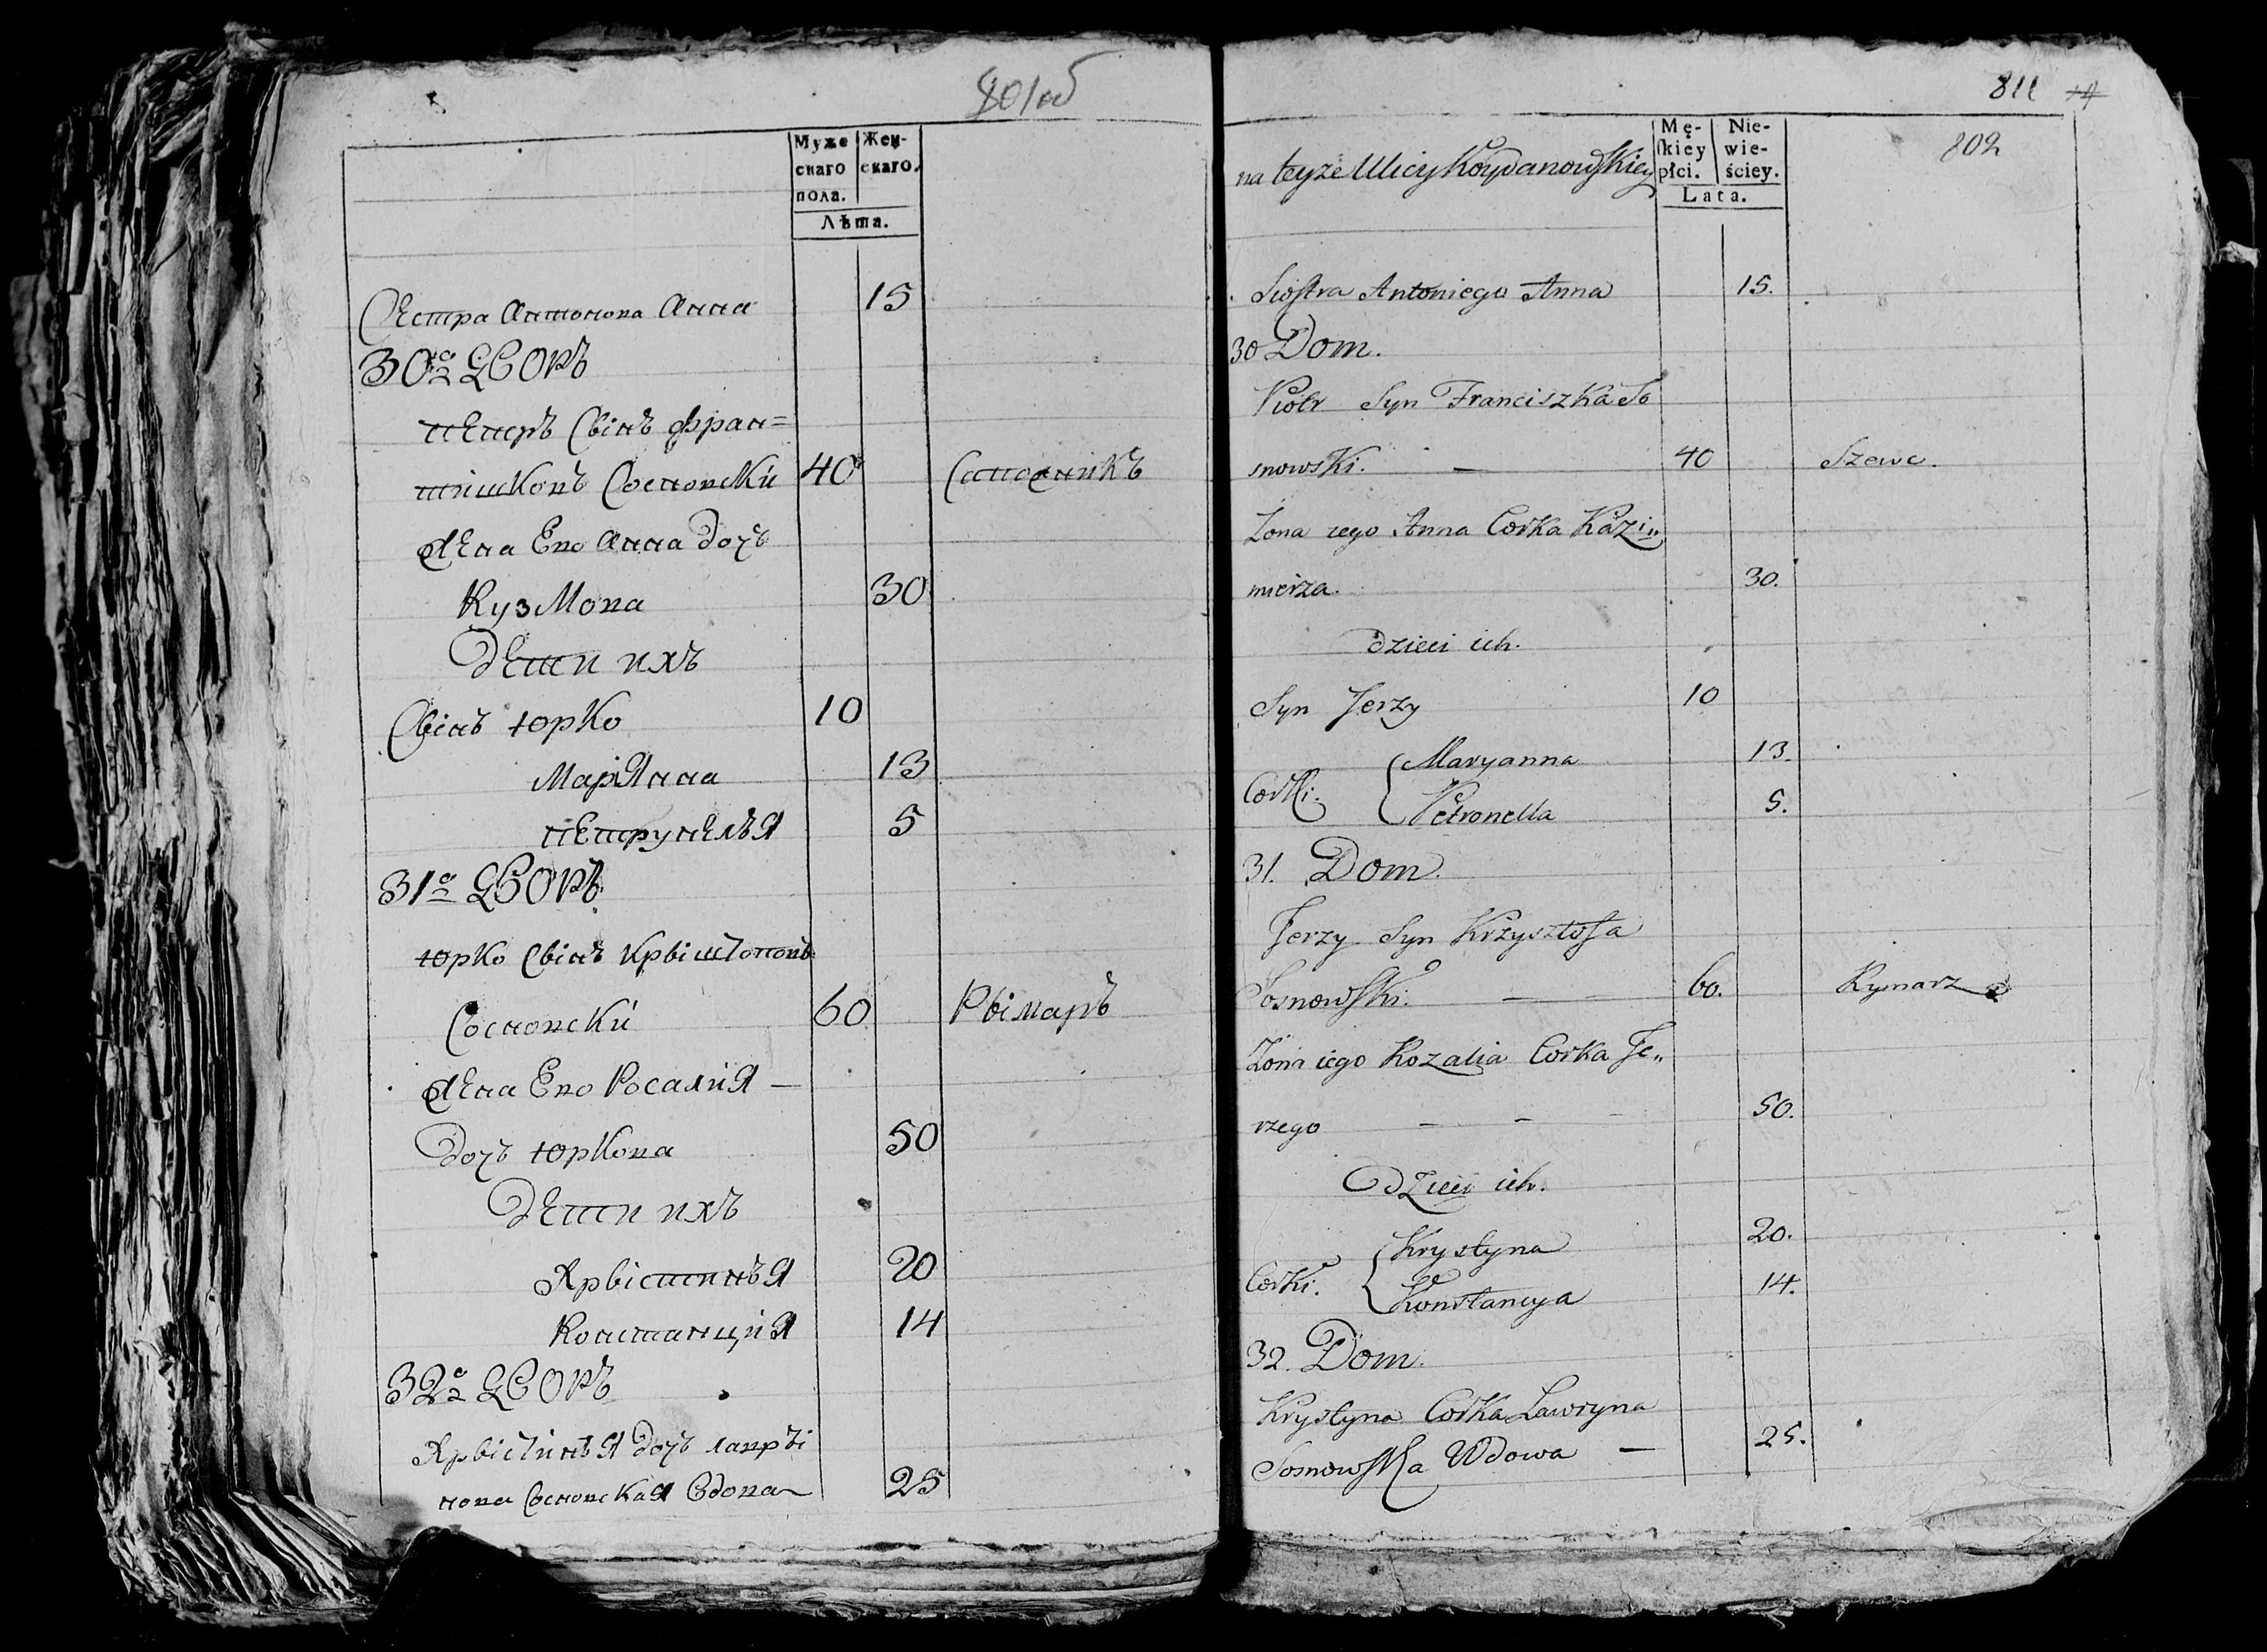 801об
Муже
скаго
пола.
Жен-
скаго.
Лѣта.
Сестра Антонова Анна 15
30й Дворъ
Петръ Сынъ Фран=
тишковъ Сосновски 40 Сапожникъ
Жена Его Анна Дочь
Кузмова 30
Дети ихъ
Сынъ Юрко 10
Марянна 13
Петрунелья 5
31й Дворъ
Юрко Сынъ Крыштоповъ
Сосновски 60 Рымаръ
Жена Его Росалия —
Дочь Юркова 50
Дети ихъ
Крыстинья 20
Констанция 14
32й Дворъ
Крыстинья Дочь лавры
нова Сосновская Вдова 25
811
802
na teyże Ulicy Koydanowskiey
Mę-
skiey
płci.
Nie-
wie-
ściey.
Lata.
Siostra Antoniego Anna 15.
30 Dom.
Piotr Syn Franciszka So
snowski. — 40 Szewc.
Żona iego Anna Corka Kazi„
mierza. 30.
dzieci ich.
Syn Jerzy 10
Corki. Maryanna 13.
Petronella 5.
31. Dom.
Jerzy Syn Krzysztofa
Sosnowski. — 60. Rymarz
Żona iego Rozalia Corka Je„
rzego — — 50.
Dzieci ich.
Corki. Krystyna 20.
Konstancya 14.
32. Dom.
Krystyna Corka Lawryna
Sosnowska Wdowa — 25.